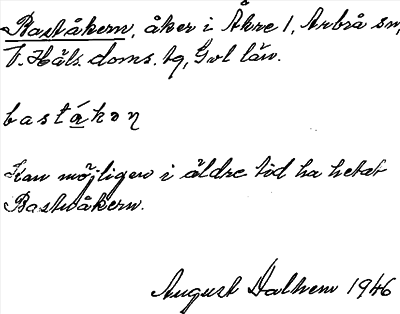 Baståkern, åker i Åkre 1, Arbrå sn,
V. Häls. doms. tg, Gvl län.
bastákọn
Kan möjligen i äldre tid ha hetat
Bastuåkern.
August Dalhem 1946